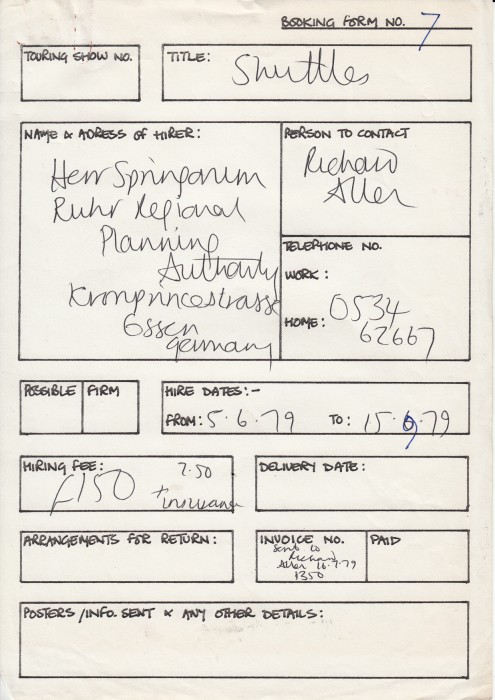 BOOKING FORM NO. 7
TOURING SHOW NO.
TITLE: Shuttles
NAME & ADRESS OF HIRER:
Herr
Ruhr Regional
Planning
Authority
Kronprincestrasse
Essen
Germany
PERSON TO CONTACT
Richard
Allen
TELEPHONE NO.
WORK:
HOME: 0534
62667
POSSIBLE FIRM
HIRE DATES:-
FROM: 5.6.79 TO: 15.6.79
HIRING FEE: 7.50
£150 + insurance
DELIVERY DATE:
ARRANGEMENTS FOR RETURN:
INVOICE NO.
Sent to
Richard
Allen 16.7.79
1350
PAID
POSTERS/INFO. SENT & ANY OTHER DETAILS: